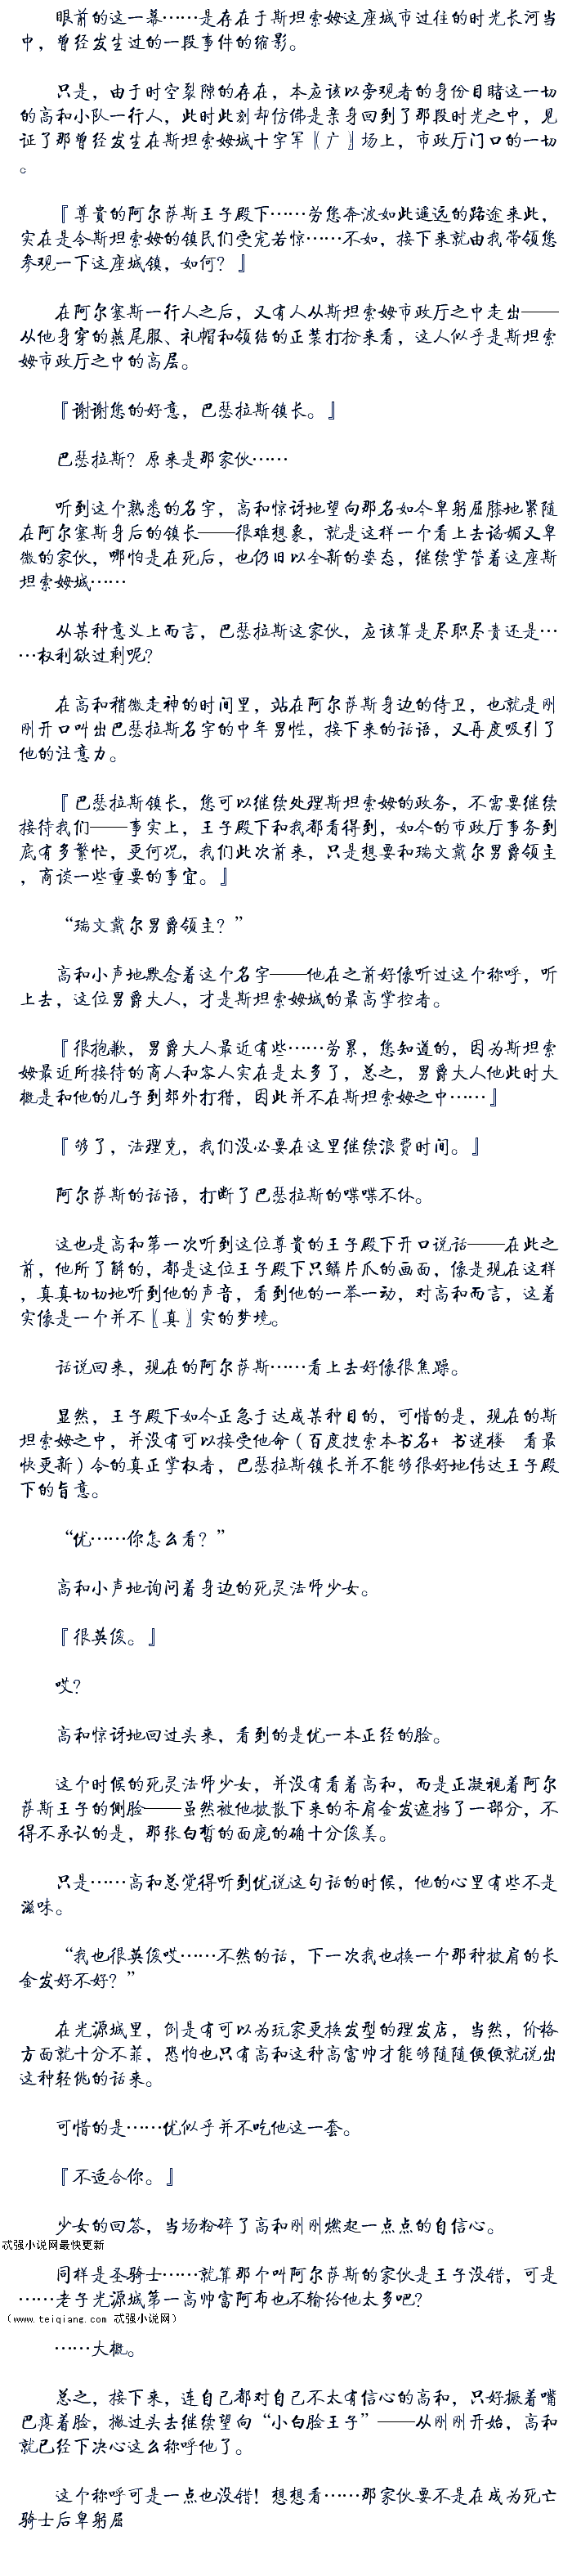 眼前的这一幕……是存在于斯坦索姆这座城市过往的时光长河当
中，曾经发生过的一段事件的缩影。
只是，由于时空裂隙的存在，本应该以旁观者的身份目睹这一切
的高和小队一行人，此时此刻却仿佛是亲身回到了那段时光之中，见
证了那曾经发生在斯坦索姆城十字军〖广〗场上，市政厅门口的一切
。
『尊贵的阿尔萨斯王子殿下……劳您奔波如此遥远的路途来此，
实在是令斯坦索姆的镇民们受宠若惊……不如，接下来就由我带领您
参观一下这座城镇，如何？』
在阿尔塞斯一行人之后，又有人从斯坦索姆市政厅之中走出——
从他身穿的燕尾服、礼帽和领结的正装打扮来看，这人似乎是斯坦索
姆市政厅之中的高层。
『谢谢您的好意，巴瑟拉斯镇长。』
巴瑟拉斯？原来是那家伙……
听到这个熟悉的名字，高和惊讶地望向那名如今卑躬屈膝地紧随
在阿尔塞斯身后的镇长——很难想象，就是这样一个看上去谄媚又卑
微的家伙，哪怕是在死后，也仍旧以全新的姿态，继续掌管着这座斯
坦索姆城……
从某种意义上而言，巴瑟拉斯这家伙，应该算是尽职尽责还是…
…权利欲过剩呢？
在高和稍微走神的时间里，站在阿尔萨斯身边的侍卫，也就是刚
刚开口叫出巴瑟拉斯名字的中年男性，接下来的话语，又再度吸引了
他的注意力。
『巴瑟拉斯镇长，您可以继续处理斯坦索姆的政务，不需要继续
接待我们——事实上，王子殿下和我都看得到，如今的市政厅事务到
底有多繁忙，更何况，我们此次前来，只是想要和瑞文戴尔男爵领主
，商谈一些重要的事宜。』
“瑞文戴尔男爵领主？”
高和小声地默念着这个名字——他在之前好像听过这个称呼，听
上去，这位男爵大人，才是斯坦索姆城的最高掌控者。
『很抱歉，男爵大人最近有些……劳累，您知道的，因为斯坦索
姆最近所接待的商人和客人实在是太多了，总之，男爵大人他此时大
概是和他的儿子到郊外打猎，因此并不在斯坦索姆之中……』
『够了，法理克，我们没必要在这里继续浪费时间。』
阿尔萨斯的话语，打断了巴瑟拉斯的喋喋不休。
这也是高和第一次听到这位尊贵的王子殿下开口说话——在此之
前，他所了解的，都是这位王子殿下只鳞片爪的画面，像是现在这样
，真真切切地听到他的声音，看到他的一举一动，对高和而言，这着
实像是一个并不〖真〗实的梦境。
话说回来，现在的阿尔萨斯……看上去好像很焦躁。
显然，王子殿下如今正急于达成某种目的，可惜的是，现在的斯
坦索姆之中，并没有可以接受他命（百度搜索本书名+　书迷楼　看最
快更新）令的真正掌权者，巴瑟拉斯镇长并不能够很好地传达王子殿
下的旨意。
“优……你怎么看？”
高和小声地询问着身边的死灵法师少女。
『很英俊。』
哎？
高和惊讶地回过头来，看到的是优一本正经的脸。
这个时候的死灵法师少女，并没有看着高和，而是正凝视着阿尔
萨斯王子的侧脸——虽然被他披散下来的齐肩金发遮挡了一部分，不
得不承认的是，那张白皙的面庞的确十分俊美。
只是……高和总觉得听到优说这句话的时候，他的心里有些不是
滋味。
“我也很英俊哎……不然的话，下一次我也换一个那种披肩的长
金发好不好？”
在光源城里，倒是有可以为玩家更换发型的理发店，当然，价格
方面就十分不菲，恐怕也只有高和这种高富帅才能够随随便便就说出
这种轻佻的话来。
可惜的是……优似乎并不吃他这一套。
『不适合你。』
少女的回答，当场粉碎了高和刚刚燃起一点点的自信心。
忒强小说网最快更新
同样是圣骑士……就算那个叫阿尔萨斯的家伙是王子没错，可是
……老子光源城第一高帅富阿布也不输给他太多吧？
（www.teiqiang.com 忒强小说网）
……大概。
总之，接下来，连自己都对自己不太有信心的高和，只好撅着嘴
巴疼着脸，撇过头去继续望向“小白脸王子”——从刚刚开始，高和
就已经下决心这么称呼他了。
这个称呼可是一点也没错！想想看……那家伙要不是在成为死亡
骑士后卑躬屈